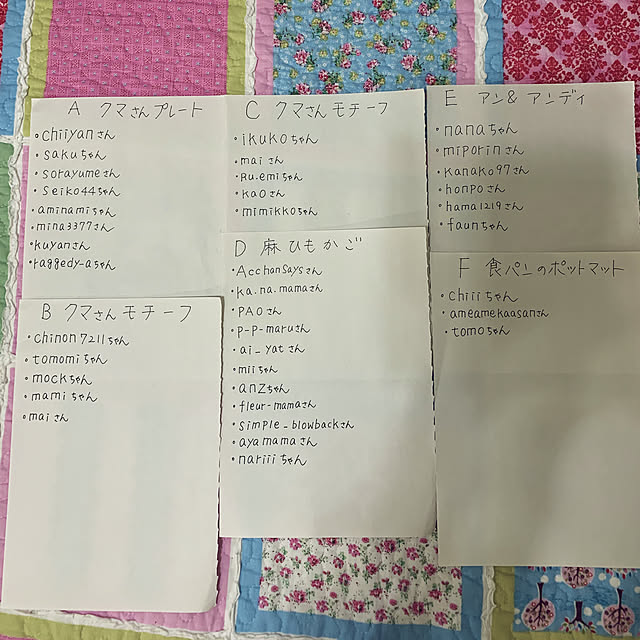 A クマさんプレート
•chiiyanさん
•sakuちゃん
•sorayumeさん
•Seiko44ちゃん
•aminamiちゃん
•mina3377さん
•kuyanさん
•raggedy-aちゃん
B クマさんモチーフ
•chinon7211ちゃん
•tomomiちゃん
•mockちゃん
•mamiちゃん
•maiさん
C クマさんモチーフ
•ikukoちゃん
•maiさん
•Ru.emiちゃん
•kaoさん
•mimikkoちゃん
D 麻ひもかご
•Acchansaysさん
•ka.na.mamaさん
•PAOさん
•P-P-maruさん
•ai_yatさん
•miiちゃん
•anzちゃん
•fleur-mamaさん
•simple_blowbackさん
•ayamamaさん
•nariiiちゃん
E アン&アンディ
•nanaちゃん
•miporinさん
•kanako97さん
•honpoさん
•hama1219さん
•faunちゃん
F 食パンのポットマット
•chiiiちゃん
•ameamekaasanさん
•tomoちゃん